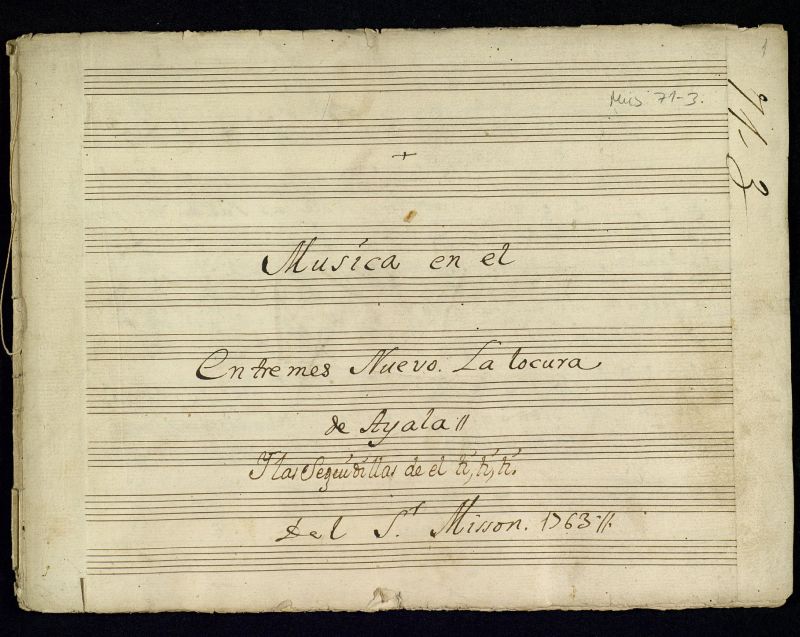 1
Mus 71-3.
71-3
+
Musica en el
Entremes Nuevo. La locura
de Ayala //
Y las Seguidillas de el ti, ti, ti.
Del S.r Misson. 1763 //.